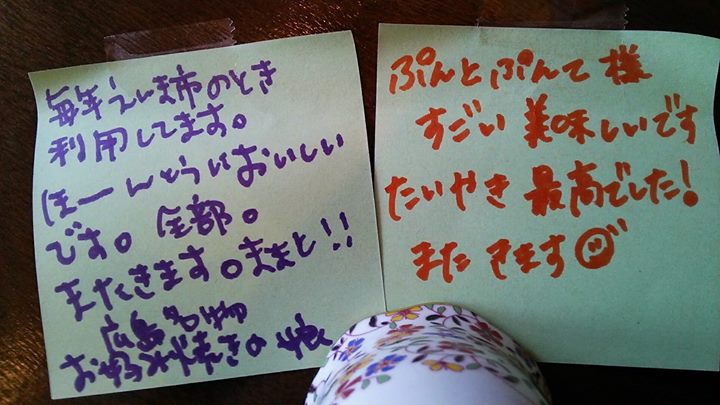 毎年えびす市のとき
利用してます。
ほーんとうにおいしい
です。全部。
またきます。ままと!!
広島名物
お好み焼きの娘
ぷんとぷんて様
すごい美味しいです
たいやき最高でした!
またきます